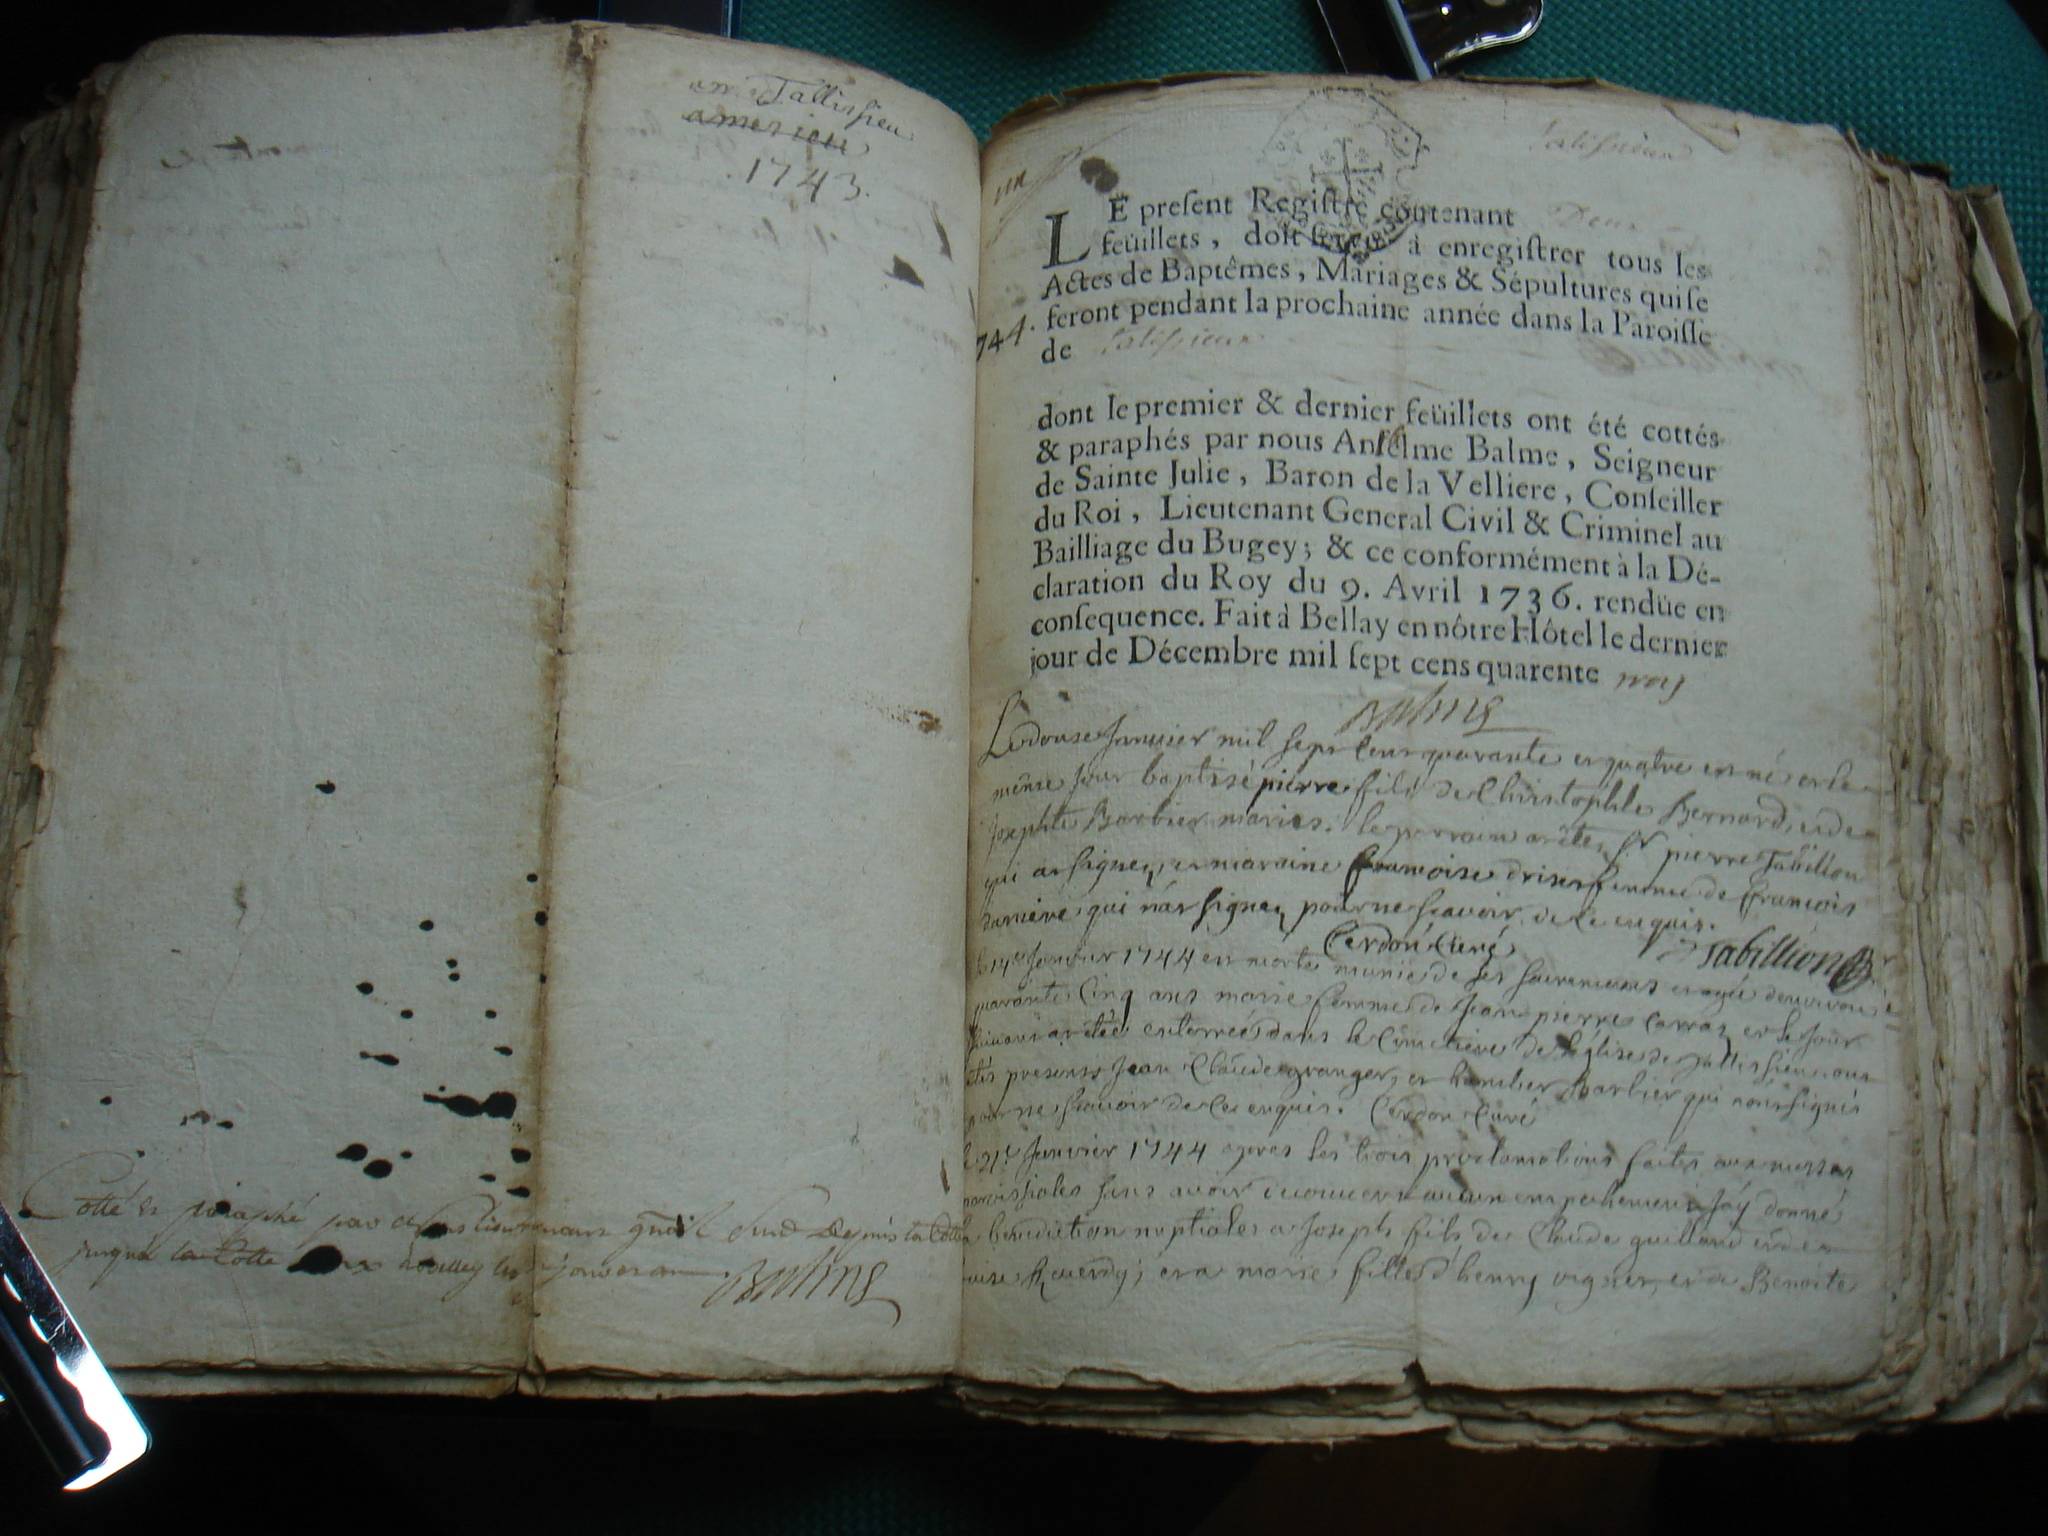 en Tallissieu
amerieu
1743.
Cotté et paraphé par
jusqua la Cotte
Balme
un
Talissieu
LE preſent Regiſtre contenant Deux
feüillets, doit ſervir à enregiſtrer tous les
Actes de Baptêmes, Mariages & Sépultures qui ſe
feront pendant la prochaine année dans la Paroiſſe
de Talissieu
744.
dont le premier & dernier feüillets ont été cottés
& paraphés par nous Anſelme Balme, Seigneur
de Sainte Julie, Baron de la Velliere, Conſeiller
du Roi, Lieutenant General Civil & Criminel au
Bailliage du Bugey; & ce conformément à la Dé-
claration du Roy du 9. Avril 1736. rendüe en
conſequence. Fait à Bellay en nôtre Hôtel le dernier
jour de Décembre mil ſept cens quarente trois
Balme
Le douse Janvier mil sept cent quarante et quatre est né et le
même jour baptisé pierre fils de Christophle Bernard, et de
Josephte Barbier mariés. le parrain a été Sr pierre Tabillion
qui a signé, et maraine francoise driset femme de francois
darriere qui n'a signé, pour ne scavoir de ce enquis.
Cerdon Curé
Tabillion
Janvier 1744 est morte munie de ses sacremens et agée denviron
quarante Cinq ans marie femme de Jean pierre Carraz et le Jour
suivant a été enterrée dans le Cimetiere de l'église de Tallissieu
présents Jean Claude granger, et humber barbier qui n'ont signés
pour ne scavoir de ce enquis. Cerdon Curé
le 21e Janvier 1744 apres les trois proclamations faites aux messes
paroissiales sans avoir decouvert aucun empechement J'ay donné
la benediction nuptiale a Joseph fils de Claude guilland et de
et a marie fille d'henry vagner, et a Benoite